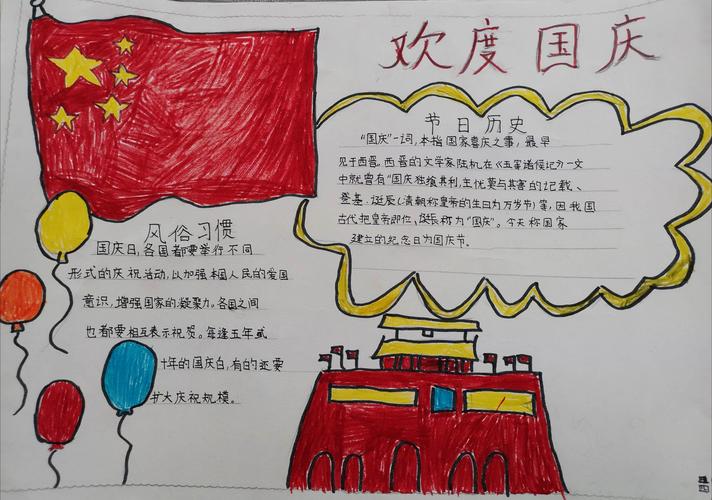 欢度国庆
节日历史
“国庆”一词,本指国家喜庆之事,最早
见于西晋。西晋的文学家陆机在《五等诸侯记》一文
中就曾有“国庆独飨其利,主忧莫与其害”的记载、
登基、诞辰(清朝称皇帝的生日为万岁节)等,因我国
古代把皇帝即位、诞辰称为“国庆”。今天称国家
建立的纪念日为国庆节。
风俗习惯
国庆日,各国都要举行不同
形式的庆祝活动,以加强本国人民的爱国
意识,增强国家的凝聚力。各国之间
也都要相互表示祝贺。每逢五年或
十年的国庆日,有的还要
扩大庆祝规模。